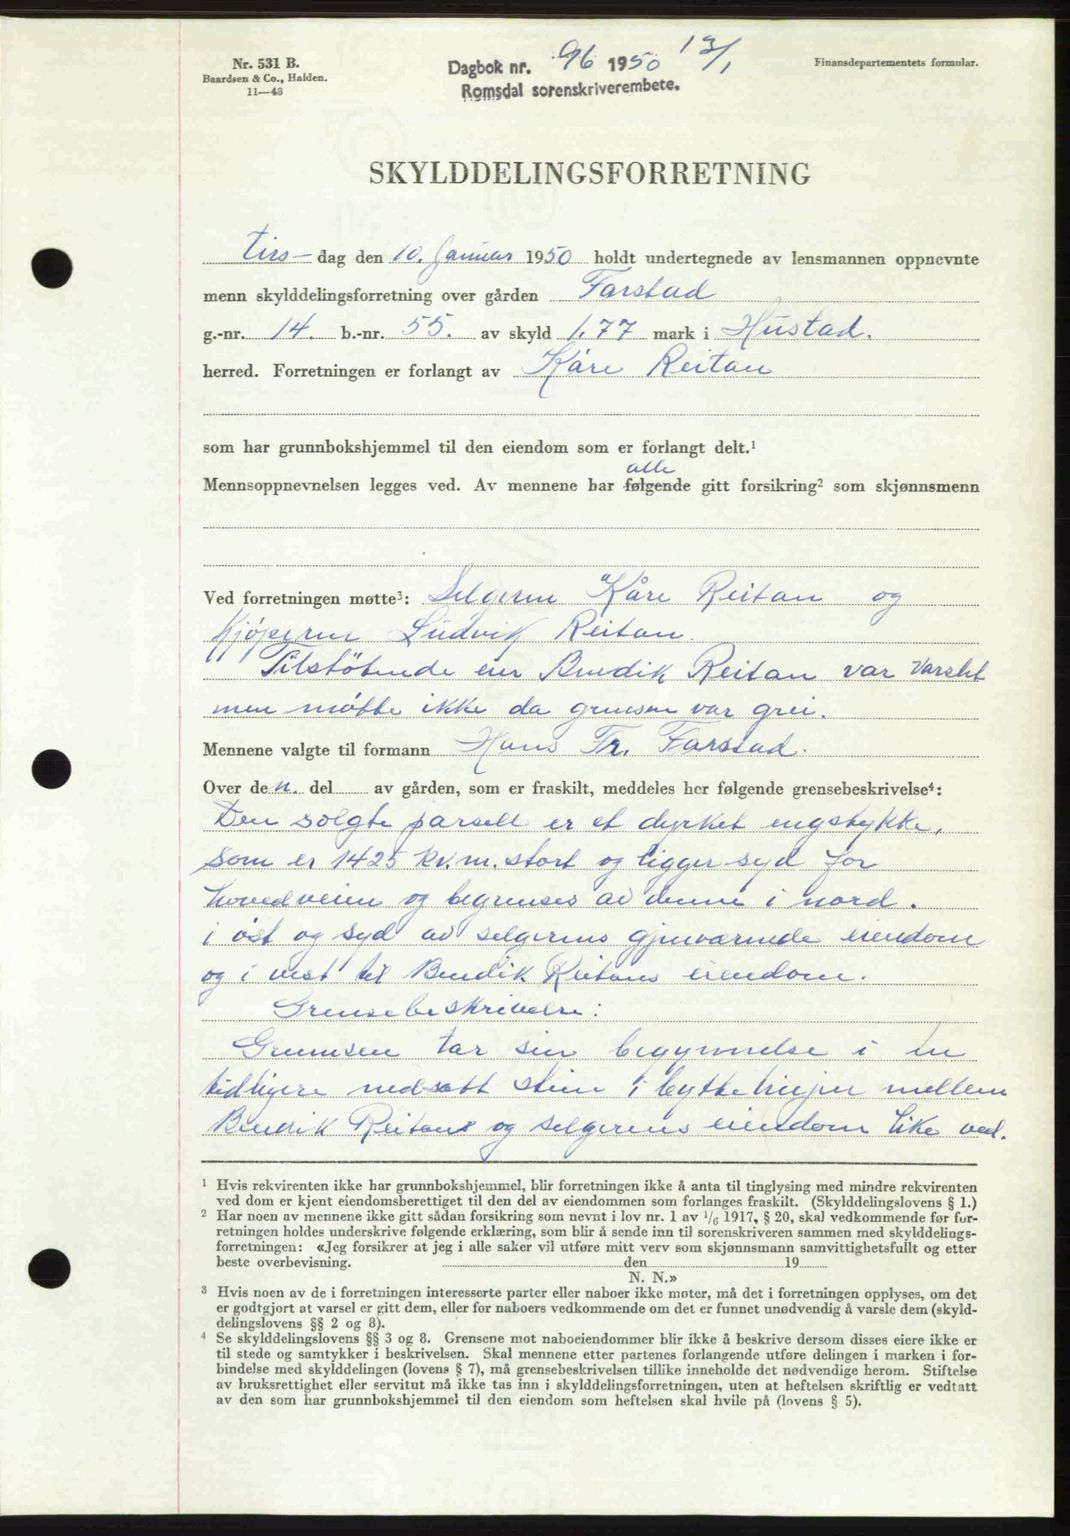 Nr. 531 B.
Baardsen & Co., Halden.
11—48
Dagbok nr. 96 1950 13/1
Romsdal sorenskriverembete.
Finansdepartementets formular.
SKYLDDELINGSFORRETNING
Tirs- dag den 10. Januar 1950 holdt undertegnede av lensmannen oppnevnte
menn skylddelingsforretning over gården Farstad
g.-nr. 14. b.-nr. 55. av skyld 1.77 mark i Hustad.
herred. Forretningen er forlangt av Kåre Reitan
som har grunnbokshjemmel til den eiendom som er forlangt delt.¹
alle
Mennsoppnevnelsen legges ved. Av mennene har følgende gitt forsikring² som skjønnsmenn
Ved forretningen møtte³: Selgeren Kåre Reitan og
Kjøperen Ludvik Reitan.
Tilstøtende eier Bendik Reitan var varslet
men møtte ikke da grensen var grei.
Mennene valgte til formann Hans Tr. Farstad.
Over den del av gården, som er fraskilt, meddeles her følgende grensebeskrivelse⁴:
Den solgte parsell er et dyrket engstykke,
som er 1425 kv.m. stort og ligger syd for
hovedveien og begrenses av denne i nord.
i øst og syd av selgerens gjenværende eiendom
og i vest til Bendik Reitans eiendom.
Grensebeskrivelse:
Grensen tar sin begynnelse i en
tidligere nedsatt stein i byttelinjen mellem
Bendik Reitans og selgerens eiendom like ved.
¹ Hvis rekvirenten ikke har grunnbokshjemmel, blir forretningen ikke å anta til tinglysing med mindre rekvirenten
ved dom er kjent eiendomsberettiget til den del av eiendommen som forlanges fraskilt. (Skylddelingslovens § 1.)
² Har noen av mennene ikke gitt sådan forsikring som nevnt i lov nr. 1 av 1/6 1917, § 20, skal vedkommende før for-
retningen holdes underskrive følgende erklæring, som blir å sende inn til sorenskriveren sammen med skylddelings-
forretningen: «Jeg forsikrer at jeg i alle saker vil utføre mitt verv som skjønnsmann samvittighetsfullt og etter
beste overbevisning. den 19
N. N.»
³ Hvis noen av de i forretningen interesserte parter eller naboer ikke møter, må det i forretningen opplyses, om det
er godtgjort at varsel er gitt dem, eller for naboers vedkommende om det er funnet unødvendig å varsle dem (skyld-
delingslovens §§ 2 og 8).
⁴ Se skylddelingslovens §§ 3 og 8. Grensene mot naboeiendommer blir ikke å beskrive dersom disses eiere ikke er
til stede og samtykker i beskrivelsen. Skal mennene etter partenes forlangende utføre delingen i marken i for-
bindelse med skylddelingen (lovens § 7), må grensebeskrivelsen tillike inneholde det nødvendige herom. Stiftelse
av bruksrettighet eller servitut må ikke tas inn i skylddelingsforretningen, uten at heftelsen skriftlig er vedtatt
av den som har grunnbokshjemmel til den eiendom som heftelsen skal hvile på (lovens § 5).